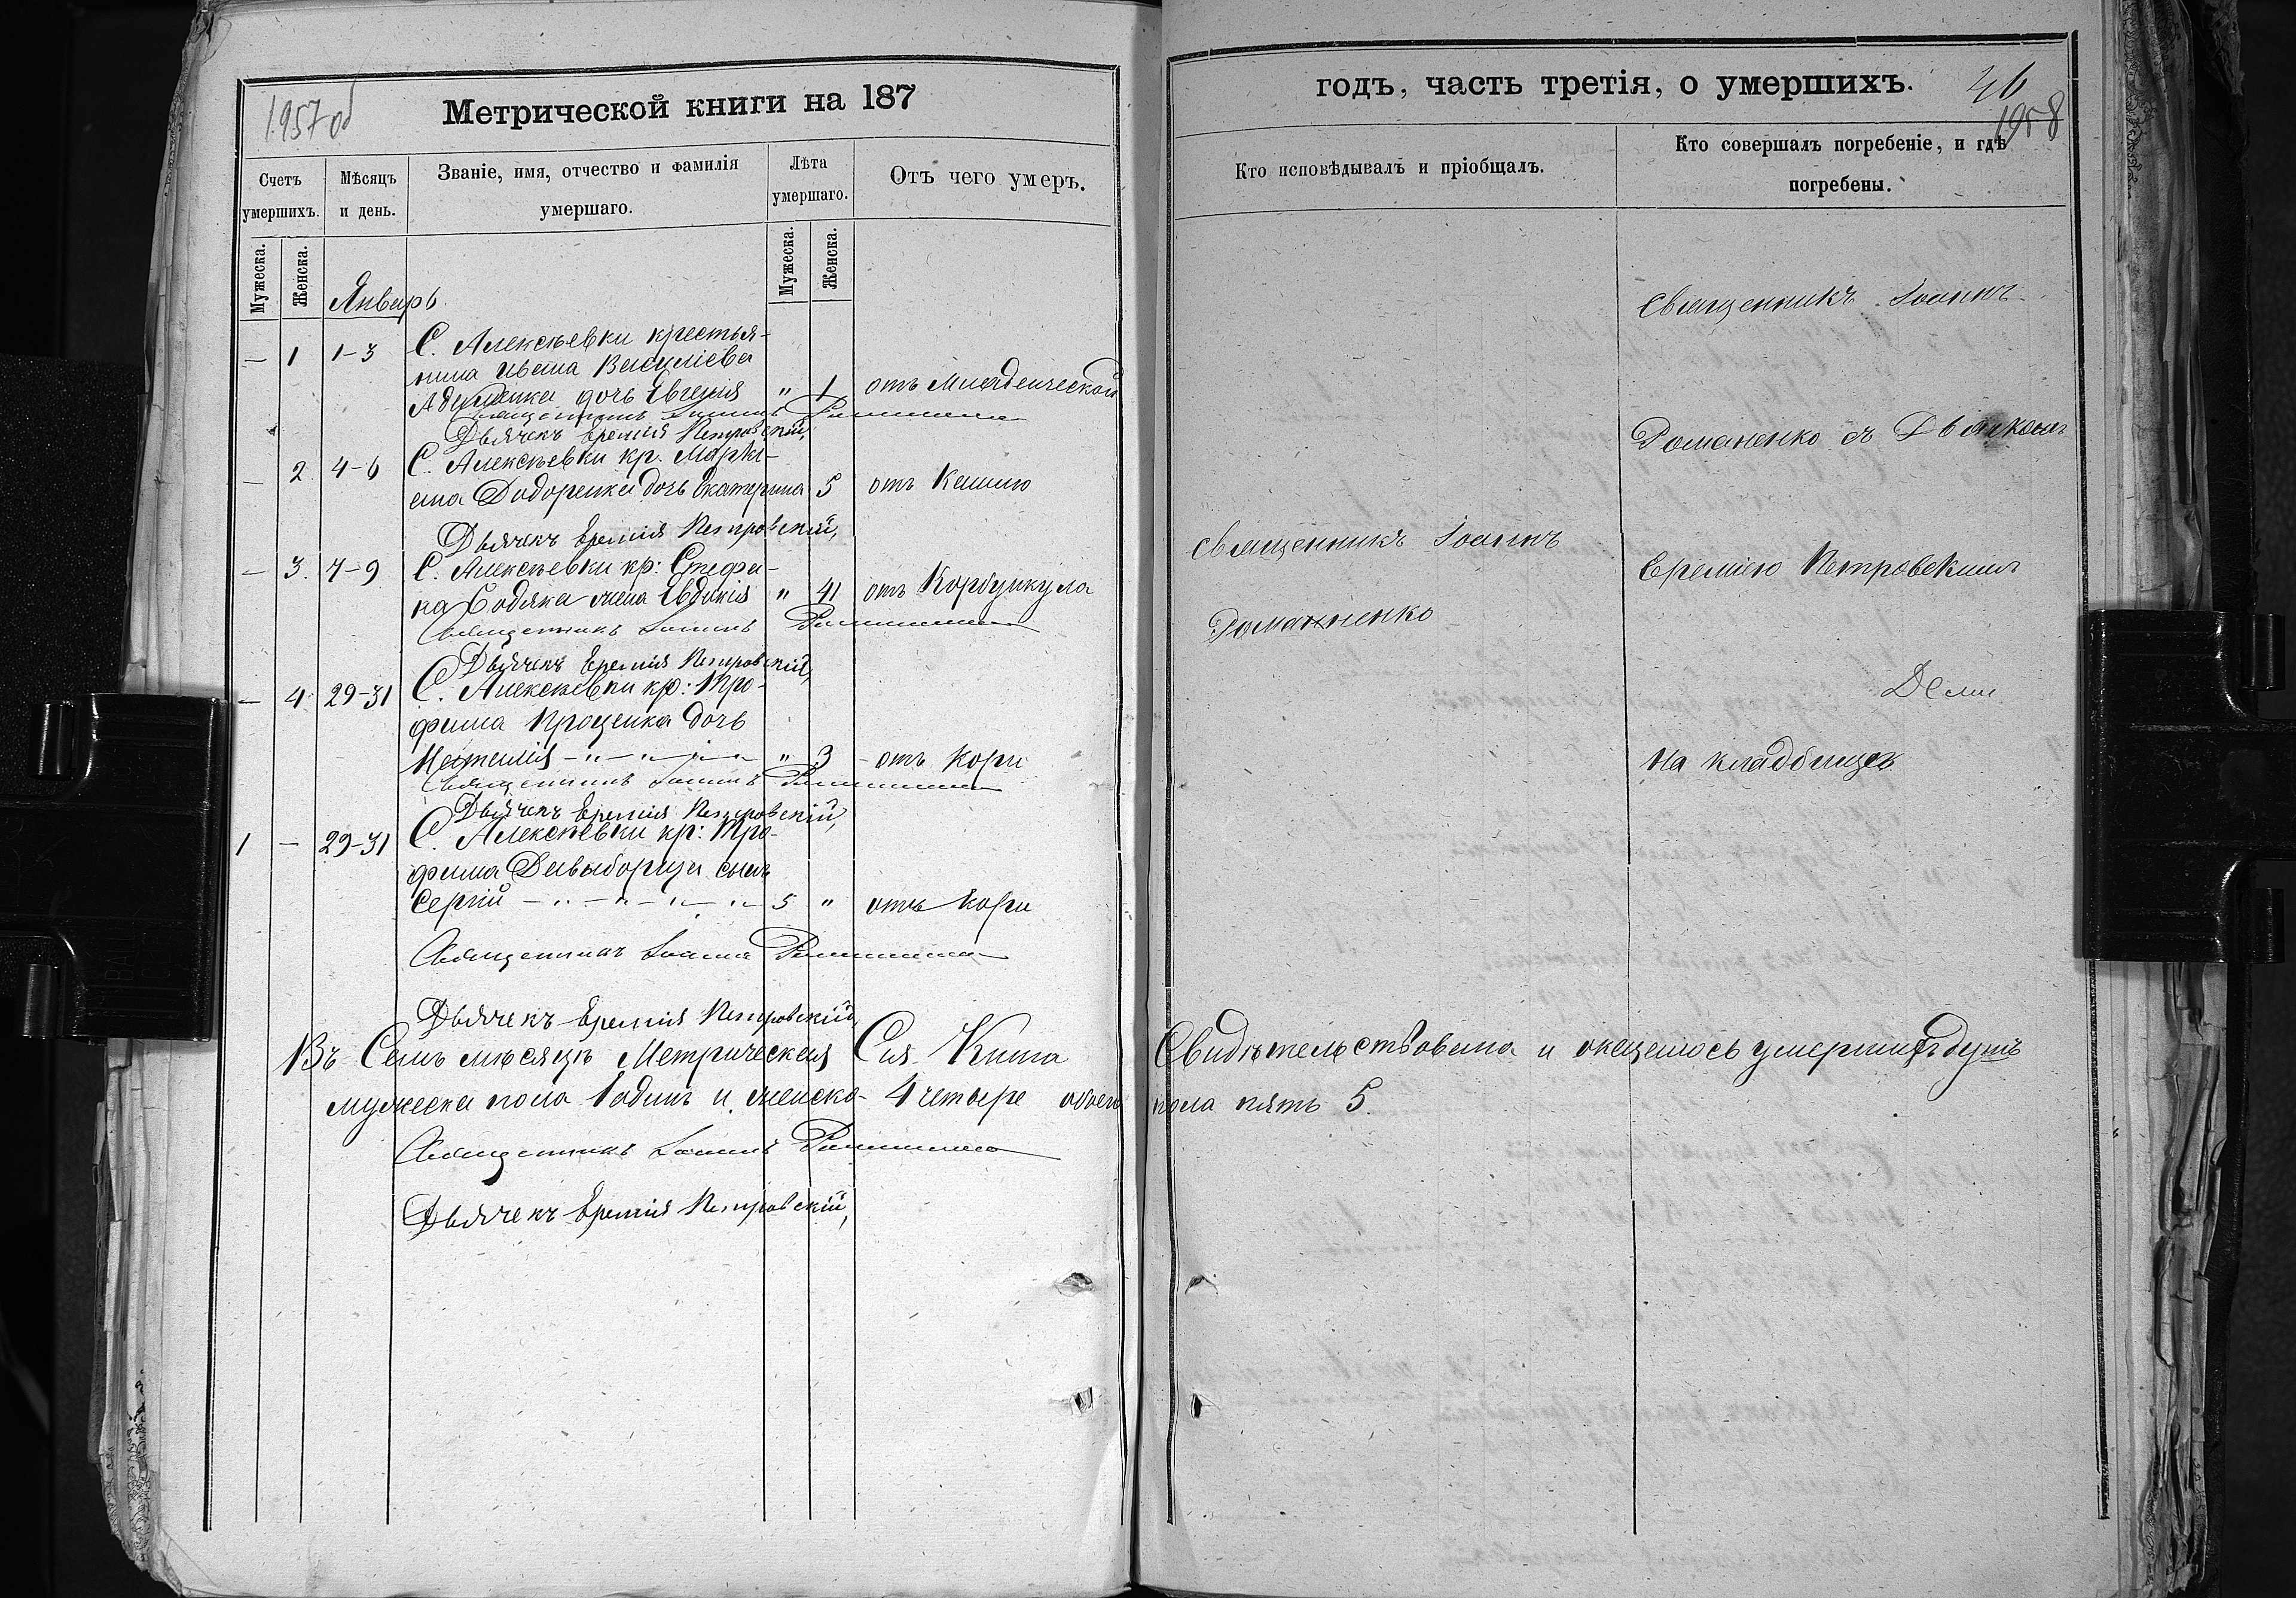 1957об
Метрической книги на 187
Счетъ умершихъ.
Мѣсяцъ и день.
Званіе, имя, отчество и фамилія
умершаго.
Лѣта
умершаго.
Отъ чего умеръ.
Мужеска.
Женска.
Мужеска.
Женска.
Январь
С. Алексѣевки крестья-
— 1 1-3 нина Ивана Василіева
дочь Евгенія " 1 отъ Младенческой
Священникъ Іоаннъ Романенко
Дьячекъ Еремія Петровскій,
— 2 4-6 С. Алексѣевки кр.
Додоренка дочь Екатерина 5 отъ Кашлю
Дьячекъ Еремія Петровскій,
— 3. 7-9 С. Алексѣевки кр: Стефа-
на Бодяка жена Евдокія " 41 отъ
Священникъ Іоаннъ Романенко
Дьячекъ Еремія Петровскій,
— 4 29-31 С. Алексѣевки кр: Тро-
фима Проценка дочь
Наталія — " — " — " — " 3 - отъ Кори
Священникъ Іоаннъ Романенко
Дьячекъ Еремія Петровскій,
1 — 29-31 С. Алексѣевки кр: Тро-
фима сынъ
Сергій — " — " — " — " — 5 " отъ Кори
Священникъ Іоаннъ Романенко
Дьячекъ Еремія Петровскій,
Въ Семъ мѣсяцѣ Метрическая Сія Книга
мужеска пола 1 одинъ и женска- 4 четыре обоего
Священникъ Іоаннъ Романенко
Дьячекъ Еремія Петровскій,
годъ, часть третія, о умершихъ.
46
1958
Кто исповѣдывалъ и пріобщалъ.
Кто совершалъ погребеніе, и гдѣ
погребены.
Священникъ Іоаннъ
Романенко съ Дьячкомъ
Священникъ Іоаннъ
Романенко
Ереміею Петровскимъ
На кладбищѣ
Свидѣтельствована и оказалось умершихъ душъ
пола пять 5.